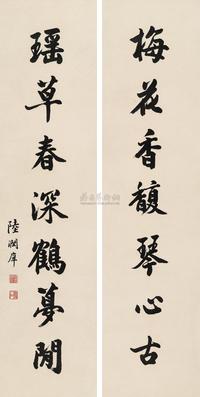 梅花香馥琴心古
瑶草春深鶴夢閒
陸潤庠